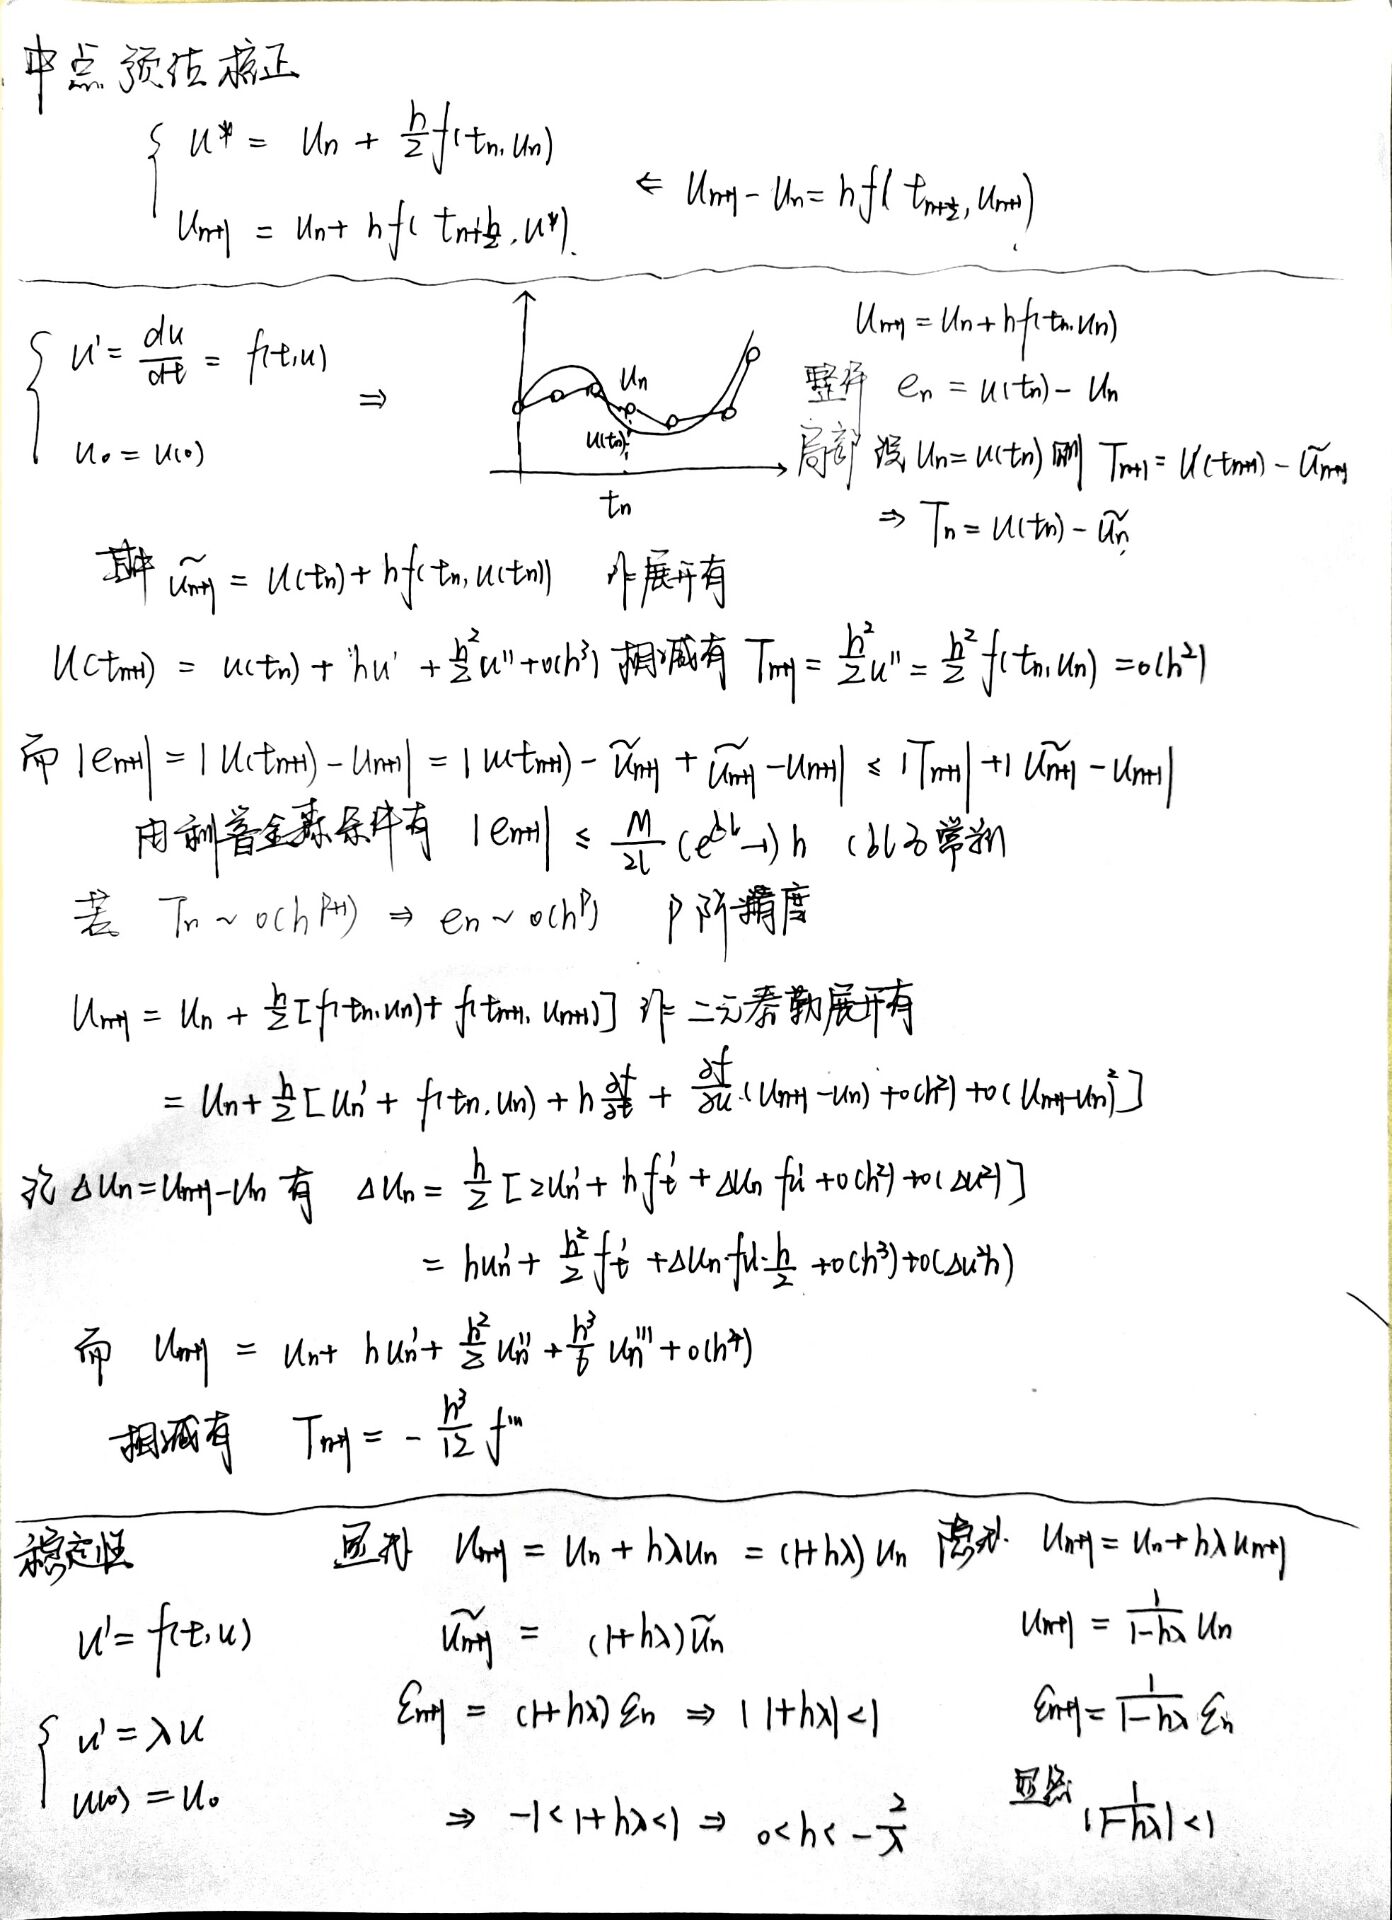 中点预估校正
u* = u_n + h/2 f(t_n, u_n)
u_{n+1} = u_n + h f(t_n+h/2, u*). ⇐ u_{n+1} - u_n = h f(t_{n+1/2}, u_{n+1})
u_{n+1} = u_n + h f(t_n, u_n)
u' = du/dt = f(t,u) ⇒
整体 e_n = u(t_n) - u_n
u_0 = u(0)
u_n
u(t_n)
t_n
局部 设 u_n = u(t_n) 则 T_{n+1} = u(t_{n+1}) - ũ_{n+1}
⇒ T_n = u(t_n) - ũ_n
其中 ũ_{n+1} = u(t_n) + h f(t_n, u(t_n)) 作展开有
u(t_{n+1}) = u(t_n) + hu' + h²/2 u'' + o(h³) 相减有 T_{n+1} = h²/2 u'' = h²/2 f(t_n, u_n) = o(h²)
而 |e_{n+1}| = |u(t_{n+1}) - u_{n+1}| = |u(t_{n+1}) - ũ_{n+1} + ũ_{n+1} - u_{n+1}| ≤ |T_{n+1}| + |ũ_{n+1} - u_{n+1}|
由利普金森条件有 |e_{n+1}| ≤ M/2l (e^{bl} -1) h (bl为常数
若 T_n ~ o(h^{p+1}) ⇒ e_n ~ o(h^p) p阶精度
u_{n+1} = u_n + h/2 [f(t_n, u_n) + f(t_{n+1}, u_{n+1})] 作二元泰勒展开有
= u_n + h/2 [u_n' + f(t_n, u_n) + h ∂f/∂t + ∂f/∂u · (u_{n+1} - u_n) + o(h²) + o(u_{n+1} - u_n)²]
记 Δu_n = u_{n+1} - u_n 有 Δu_n = h/2 [2u_n' + h f_t' + Δu_n f_u' + o(h²) + o(Δu²)]
= hu_n' + h²/2 f_t' + Δu_n · f_u' · h/2 + o(h³) + o(Δu²h)
而 u_{n+1} = u_n + hu_n' + h²/2 u_n'' + h³/6 u_n''' + o(h⁴)
相减有 T_{n+1} = - h³/12 f'''
稳定性 显式 u_{n+1} = u_n + hλu_n = (1+hλ) u_n 隐式 u_{n+1} = u_n + hλu_{n+1}
u' = f(t,u) ũ_{n+1} = (1+hλ) ũ_n u_{n+1} = 1/(1-hλ) u_n
ε_{n+1} = (1+hλ) ε_n ⇒ |1+hλ| < 1 ε_{n+1} = 1/(1-hλ) ε_n
u' = λu
u(0) = u_0 ⇒ -1 < 1+hλ < 1 ⇒ 0 < h < -2/λ 显然 |1/(1-hλ)| < 1